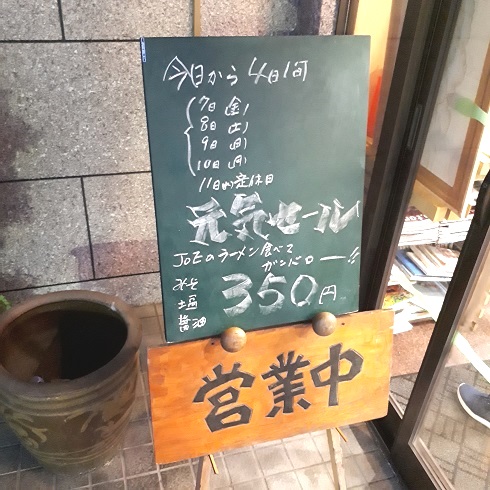 今日から4日間
7日(金)
8日(土)
9日(日)
10日(月)
11日(火)定休日
元気セール
JOEのラーメン食べて
ガンバロー!!
みそ
塩
醤油
350円
営業中